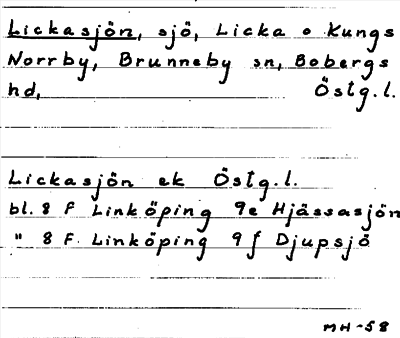 Lickasjön, sjö, Licka o Kungs
Norrby, Brunneby sn, Bobergs
hd, Östg.l.
Lickasjön ek Östg.l.
bl. 8 F Linköping 9e Hjässasjön
" 8 F. Linköping 9f Djupsjö
MH-58